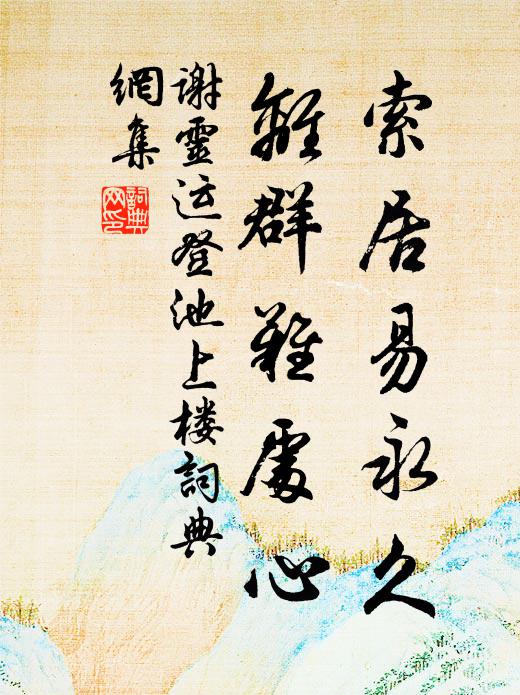 索居易永久
離群難處心
謝靈运登池上楼詞典
網集
詞典
网印